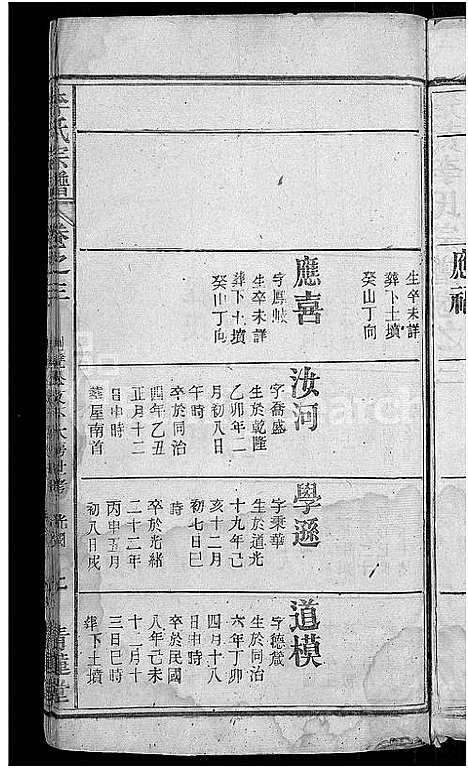 應福
生卒未詳
葬下土墳
癸山丁向
應喜
字鳳岐
生卒未詳
葬下土墳
癸山丁向
汝河
字喬盛
生於乾隆
乙卯年二
月初八日
午時
卒於同治
四年乙丑
正月十二
日申時
葬屋南首
學遜
字秉華
生於道光
十九年己
亥十二月
初七日巳
時
卒於光緒
二十二年
丙申五月
初八日戌
道模
字德箴
生於同治
六年丁卯
四月十八
日申時
卒於民國
八年己未
十二月十
三日巳時
葬下土墳
李氏宗譜
卷之三
青蓮堂